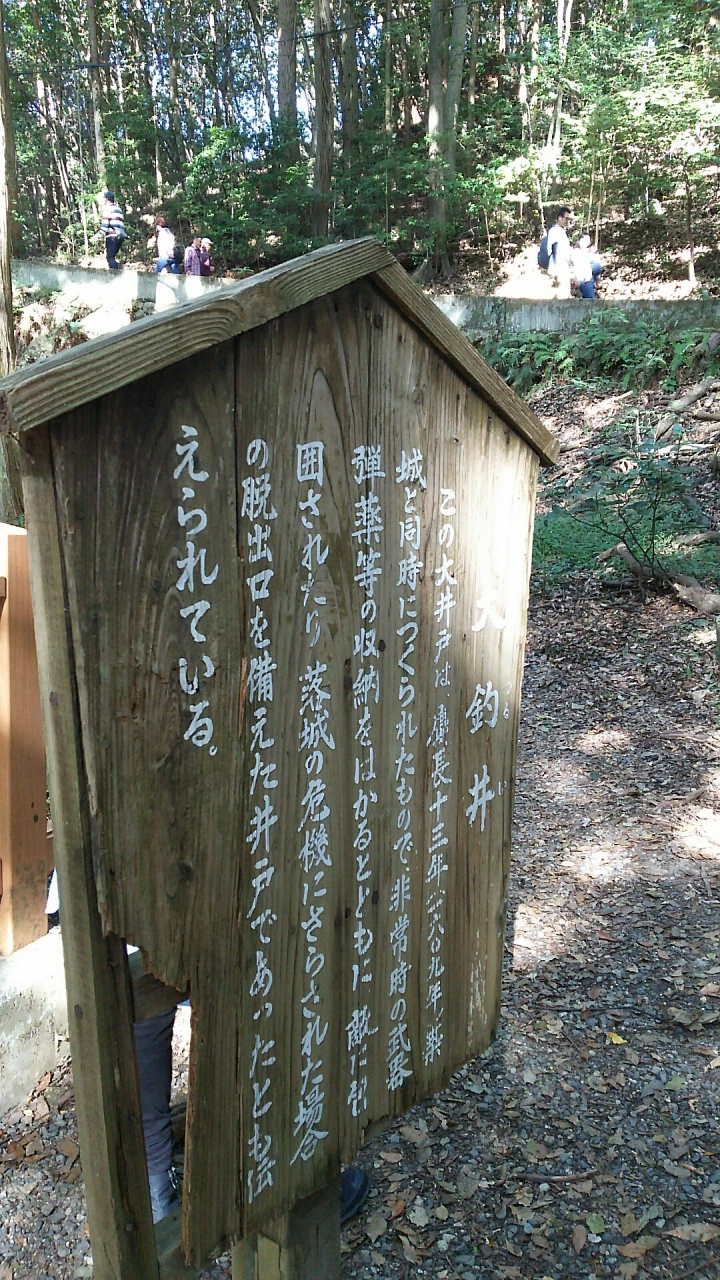 大釣井
つるい
この大井戸は、慶長十三年(一六〇九年)築
城と同時につくられたもので、非常時の武器
弾薬等の収納をはかるとともに敵に包
囲されたり落城の危機にさらされた場合
の脱出口を備えた井戸であったとも伝
えられている。